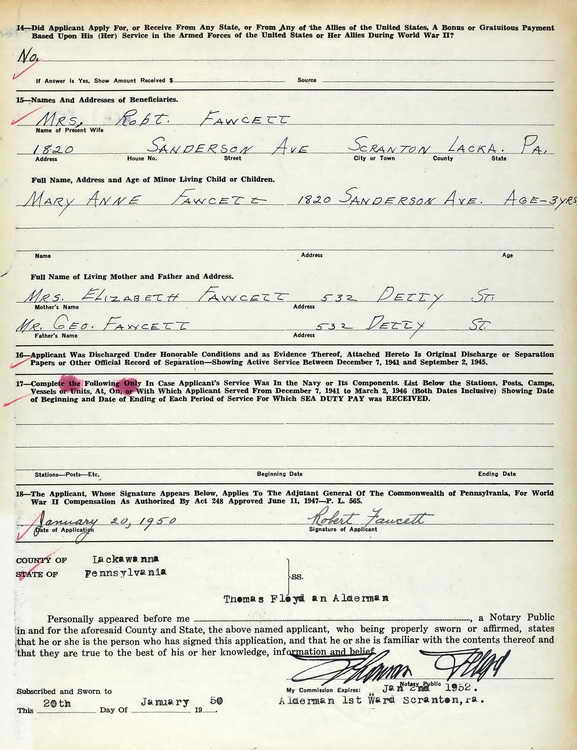 14—Did Applicant Apply For, or Receive From Any State, or From Any of the Allies of the United States, A Bonus or Gratuitous Payment
Based Upon His (Her) Service in the Armed Forces of the United States or Her Allies During World War II?
No.
If Answer is Yes, Show Amount Received $ Source
15—Names And Addresses of Beneficiaries.
Mrs, Robt. Fawcett
Name of Present Wife
1820 Sanderson Ave Scranton Lacka. Pa.
Address House No. Street City or Town County State
Full Name, Address and Age of Minor Living Child or Children.
Mary Anne Fawcett 1820 Sanderson Ave. Age-3yrs
Name Address Age
Full Name of Living Mother and Father and Address.
Mrs. Elizabeth Fawcett 532 Detty St.
Mother's Name Address
Mr. Geo. Fawcett 532 Detty St.
Father's Name Address
16—Applicant Was Discharged Under Honorable Conditions and as Evidence Thereof, Attached Hereto Is Original Discharge or Separation
Papers or Other Official Record of Separation—Showing Active Service Between December 7, 1941 and September 2, 1945.
17—Complete the Following Only In Case Applicant's Service Was In the Navy or Its Components. List Below the Stations, Posts, Camps,
Vessels or Units, At, On, or With Which Applicant Served From December 7, 1941 to March 2, 1946 (Both Dates Inclusive) Showing Date
of Beginning and Date of Ending of Each Period of Service For Which SEA DUTY PAY was RECEIVED.
Stations—Posts—Etc. Beginning Date Ending Date
18—The Applicant, Whose Signature Appears Below, Applies To The Adjutant General Of The Commonwealth of Pennsylvania, For World
War II Compensation As Authorized By Act 248 Approved June 11, 1947—P. L. 565.
January 20, 1950 Robert Fawcett
Date of Application Signature of Applicant
COUNTY OF Lackawanna
STATE OF Pennsylvania
SS.
Thomas Floyd an Alderman
Personally appeared before me , a Notary Public
in and for the aforesaid County and State, the above named applicant, who being properly sworn or affirmed, states
that he or she is the person who has signed this application, and that he or she is familiar with the contents thereof and
that they are true to the best of his or her knowledge, information and belief.
Thomas Floyd
Notary Public
Subscribed and Sworn to My Commission Expires: Jan 2nd 1952.
This 20th Day Of January 1950 Alderman 1st Ward Scranton,Pa.